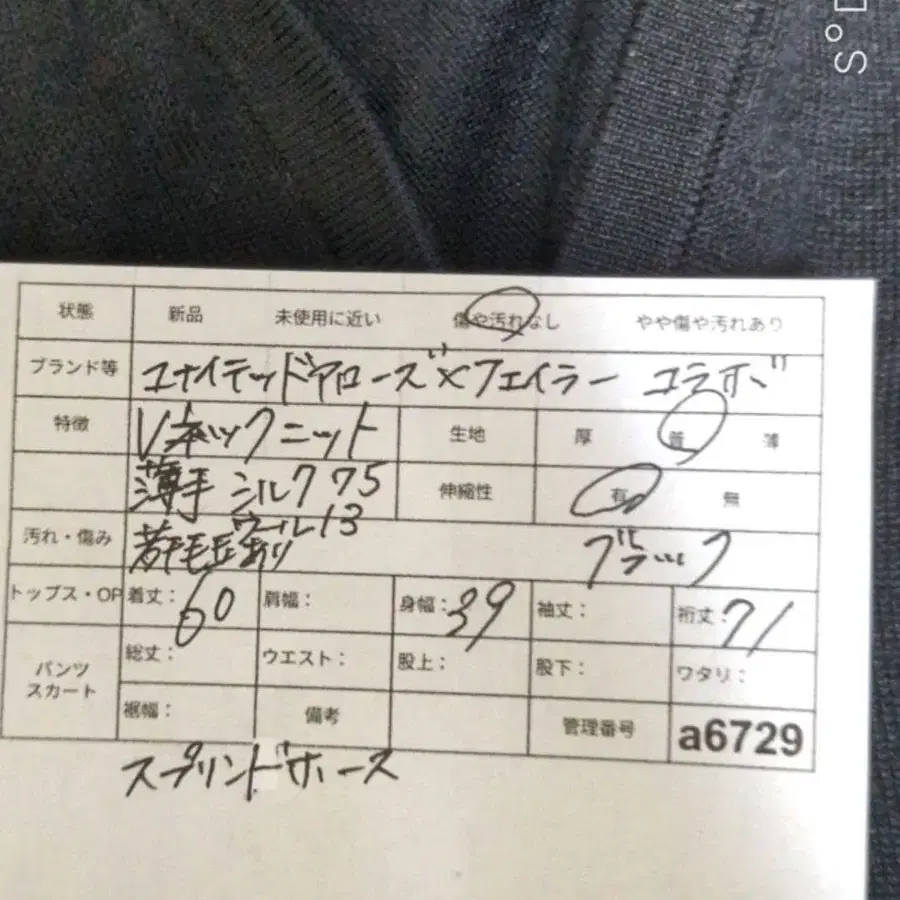 状態 新品 未使用に近い 傷や汚れなし やや傷や汚れあり
ブランド等 ユナイテッドアローズ×フェイラー コラボ
特徴 Vネックニット 生地 厚 普 薄
薄手 シルク75 伸縮性 有 無
ウール13
汚れ・傷み 若干毛玉あり ブラック
トップス・OP 着丈: 60 肩幅: 身幅: 39 袖丈: 裄丈: 71
パンツ スカート 総丈: ウエスト: 股上: 股下: ワタリ:
裾幅: 備考 管理番号 a6729
スプリンドホース